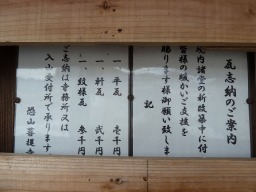 瓦志納のご案内
境内諸堂の新改築中に付
皆様の暖かいご支援を
賜ります様御願い致しま
記
一、平瓦 壱千円
一、軒瓦 弐千円
一、紋瓦 参千円
ご志納は寺務所又は
入山受付所で承ります
恐山菩提寺